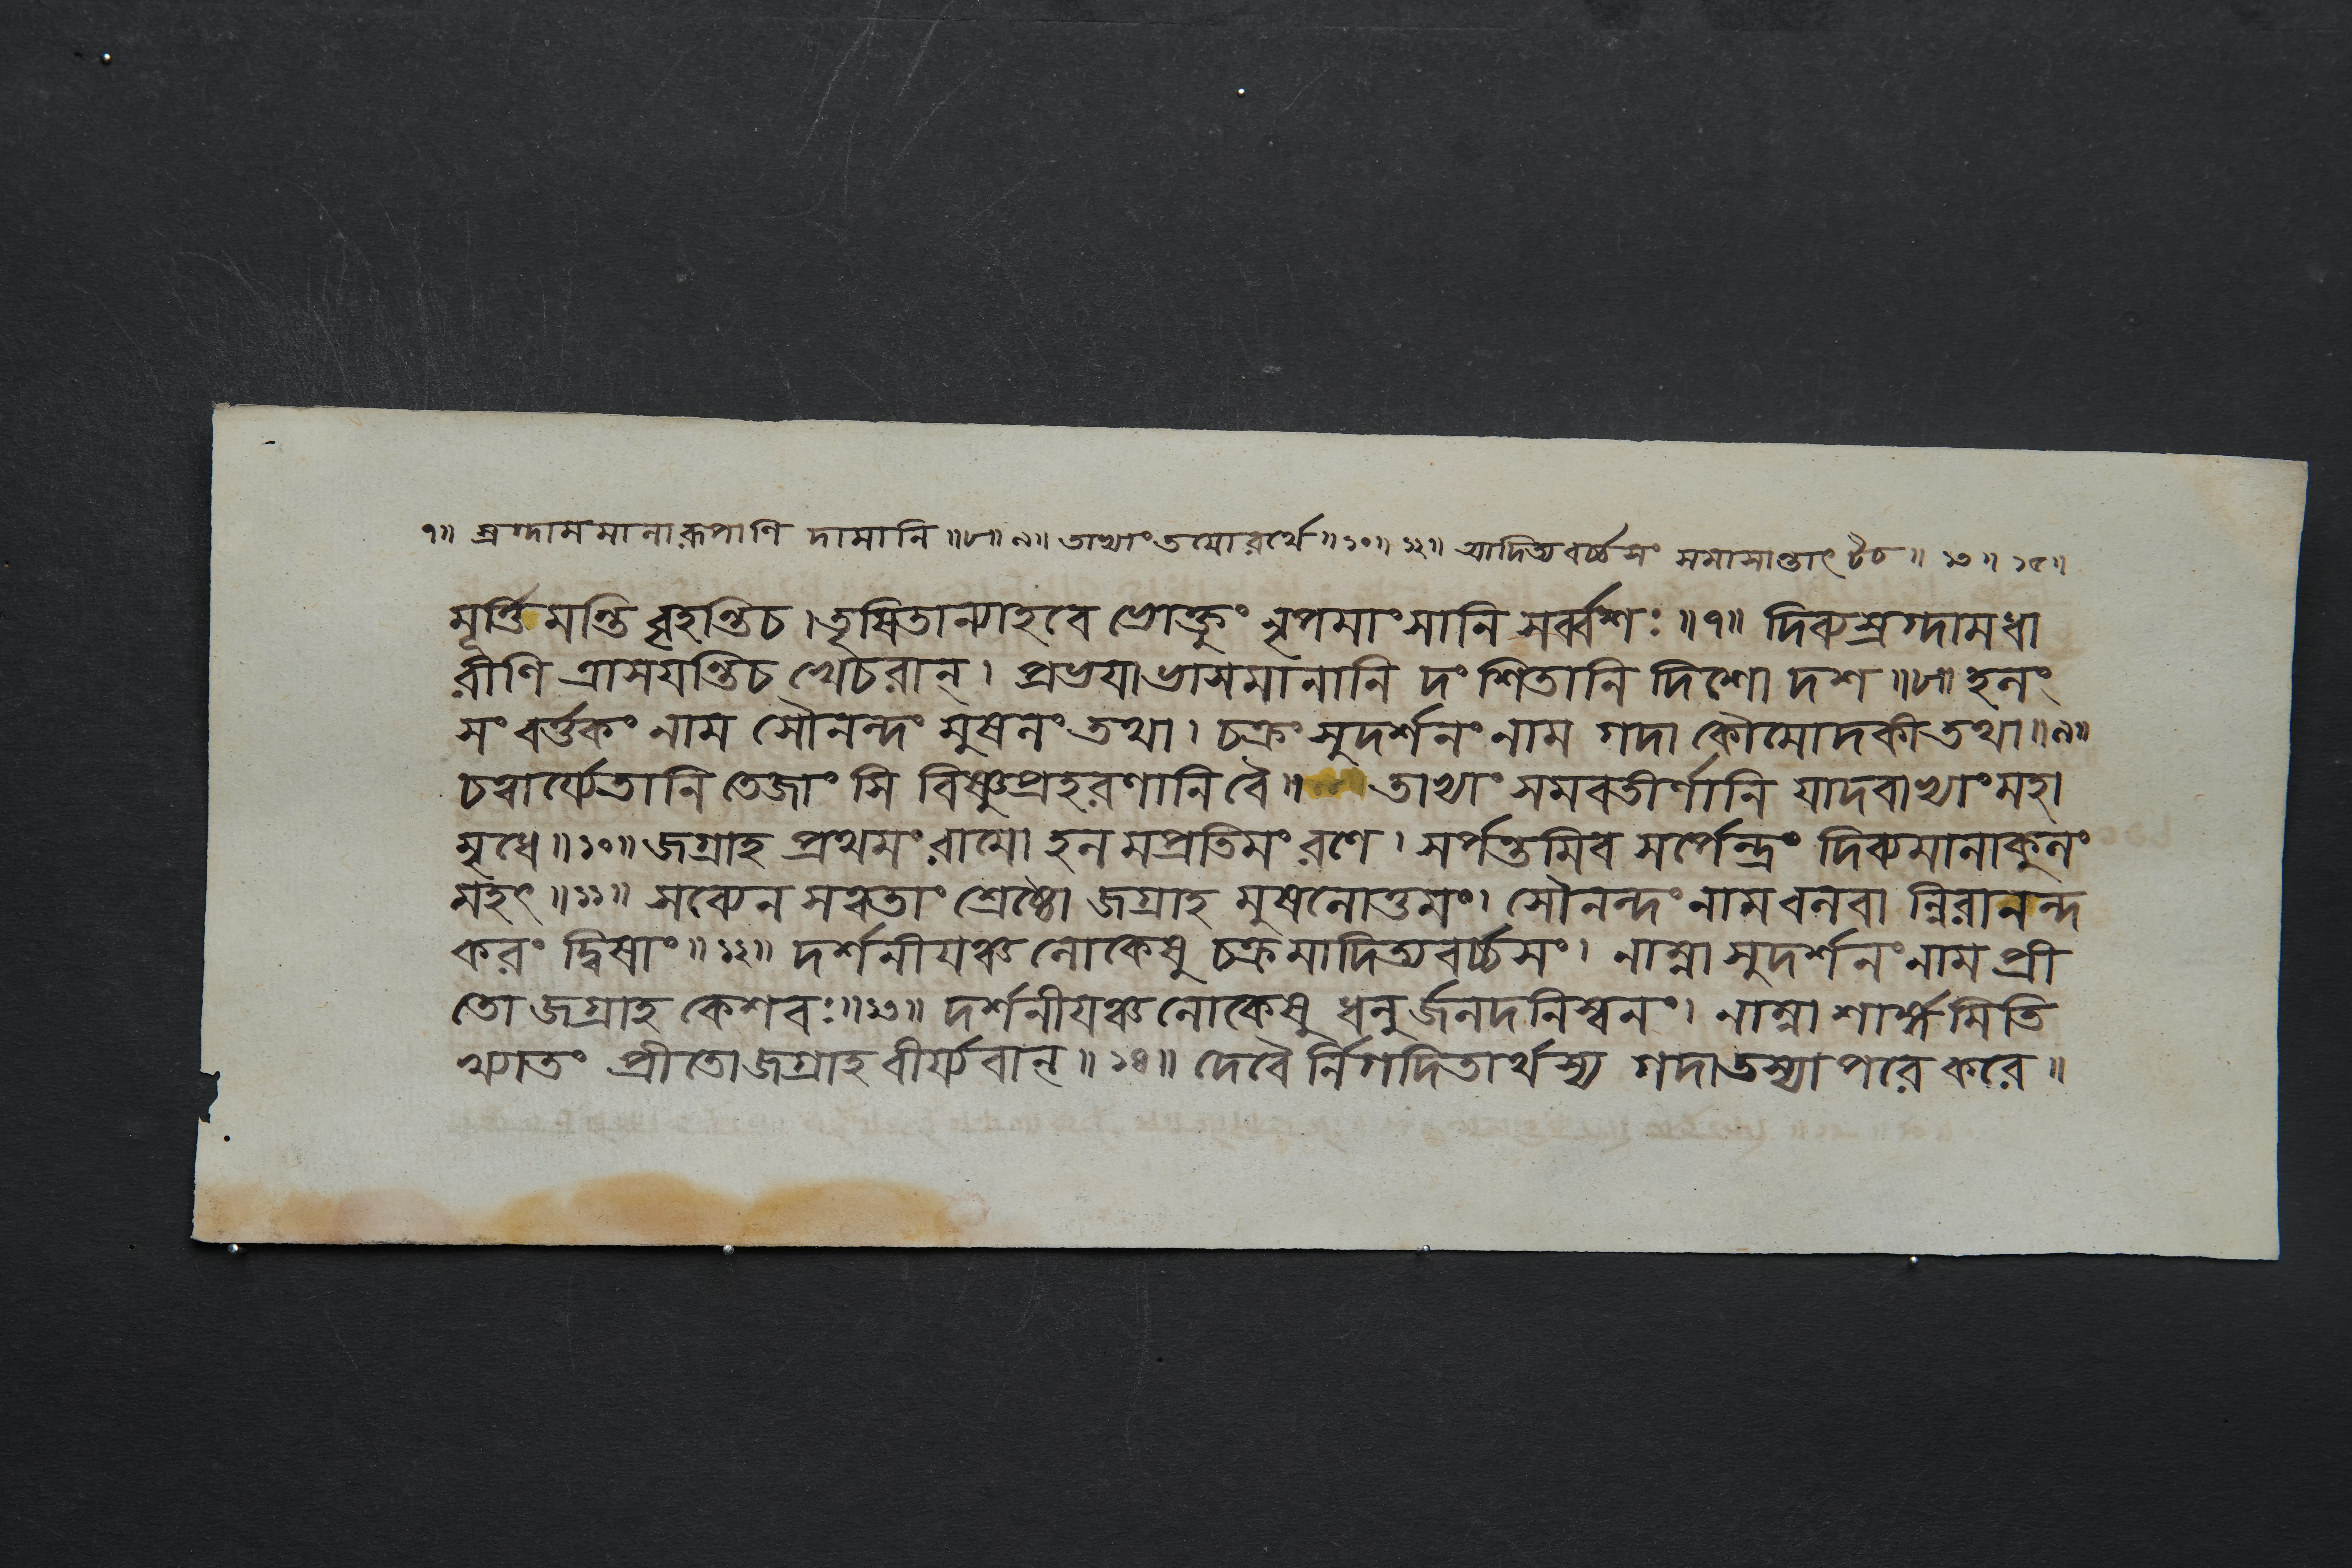 ৭॥ স্রগ্দামমানারূপাণি দামানি ॥৮॥৯॥ তাভ্যাং তয়োরর্থে ॥১০॥১২॥ আদিত্যবর্চ্চসং সমাসান্তাৎ টচ ॥ ১৩ ॥ ১৫॥
মূর্ত্তিমন্তি বৃহন্তি চ । তৃষিতান্যাহবে ভোক্তুং নৃপমাংসানি সর্ব্বশঃ ॥৭॥ দিব্যস্রগ্দামধা
রীণি ত্রাসয়ন্তি চ খেচরান্ । প্রভয়া ভাসমানানি দংশিতানি দিশো দশ ॥৮॥ হলং
সংবর্ত্তকং নাম সৌনন্দং মুষলং তথা । চক্রং সুদর্শনং নাম গদা কৌমোদকী তথা ॥৯॥
চত্বার্য্যেতানি তেজাংসি বিষ্ণুপ্রহরণানি বৈ ॥ তাভ্যাং সমবতীর্ণানি যাদবাভ্যাং মহা
মৃধে ॥১০॥ জগ্রাহ প্রথমং রামো হলমপ্রতিমং রণে । সর্পন্তমিব সর্পেন্দ্রং দিব্যমালাকুলং
মহৎ ॥১১॥ সব্যেন সত্বতাং শ্রেষ্ঠো জগ্রাহ মুষলোত্তমং । সৌনন্দং নাম বলবা ন্নিরানন্দ
করং দ্বিষাং ॥১২॥ দর্শনীয়ঞ্চ লোকেষু চক্রমাদিত্যবর্চ্চসং । নাম্না সুদর্শনং নাম প্রী
তো জগ্রাহ কেশবঃ ॥১৩॥ দর্শনীয়ঞ্চ লোকেষু ধনুর্জলদনিস্বনং । নাম্না শার্ঙ্গমিতি
খ্যাতং প্রীতো জগ্রাহ বীর্য্যবান্ ॥ ১৪॥ দেবৈর্নিগদিতার্থস্য গদা তস্যাপরে করে ॥